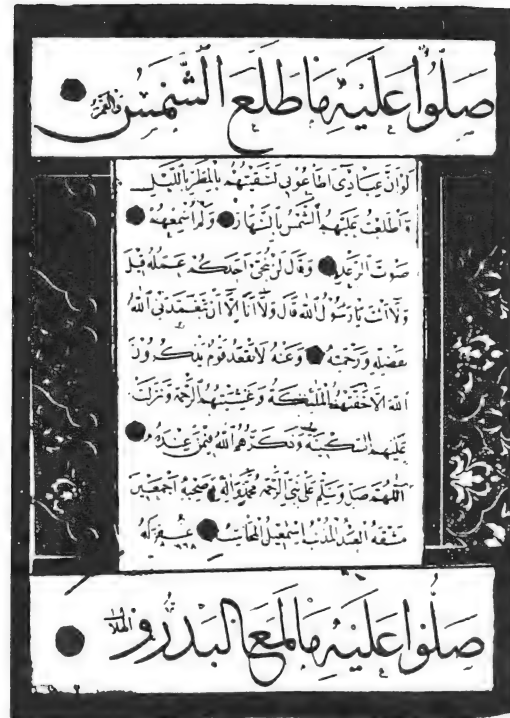 صلوا عليه ما طلع الشمس والقمر
لو ان عبادي اطاعوني لسقيتهم بالمطر بالليل
واطلعت عليهم الشمس بالنهار ولم اسمعهم
صوت الرعد وقال لن ينجي احدكم عمله قيل
ولا انت يا رسول الله قال ولا انا الا ان يتغمدني الله
بفضله ورحمته وعنه لا يقعد قوم يذكرون
الله الا حفتهم الملئكة وغشيتهم الرحمة ونزلت
عليهم السكينة وذكرهم الله فيمن عنده
اللهم صل وسلم على نبي الرحمة محمد واله وصحبه اجمعين
مشقه العبد المذنب اسمعيل غفر له
صلوا عليه ما لمع البدر و الهلال